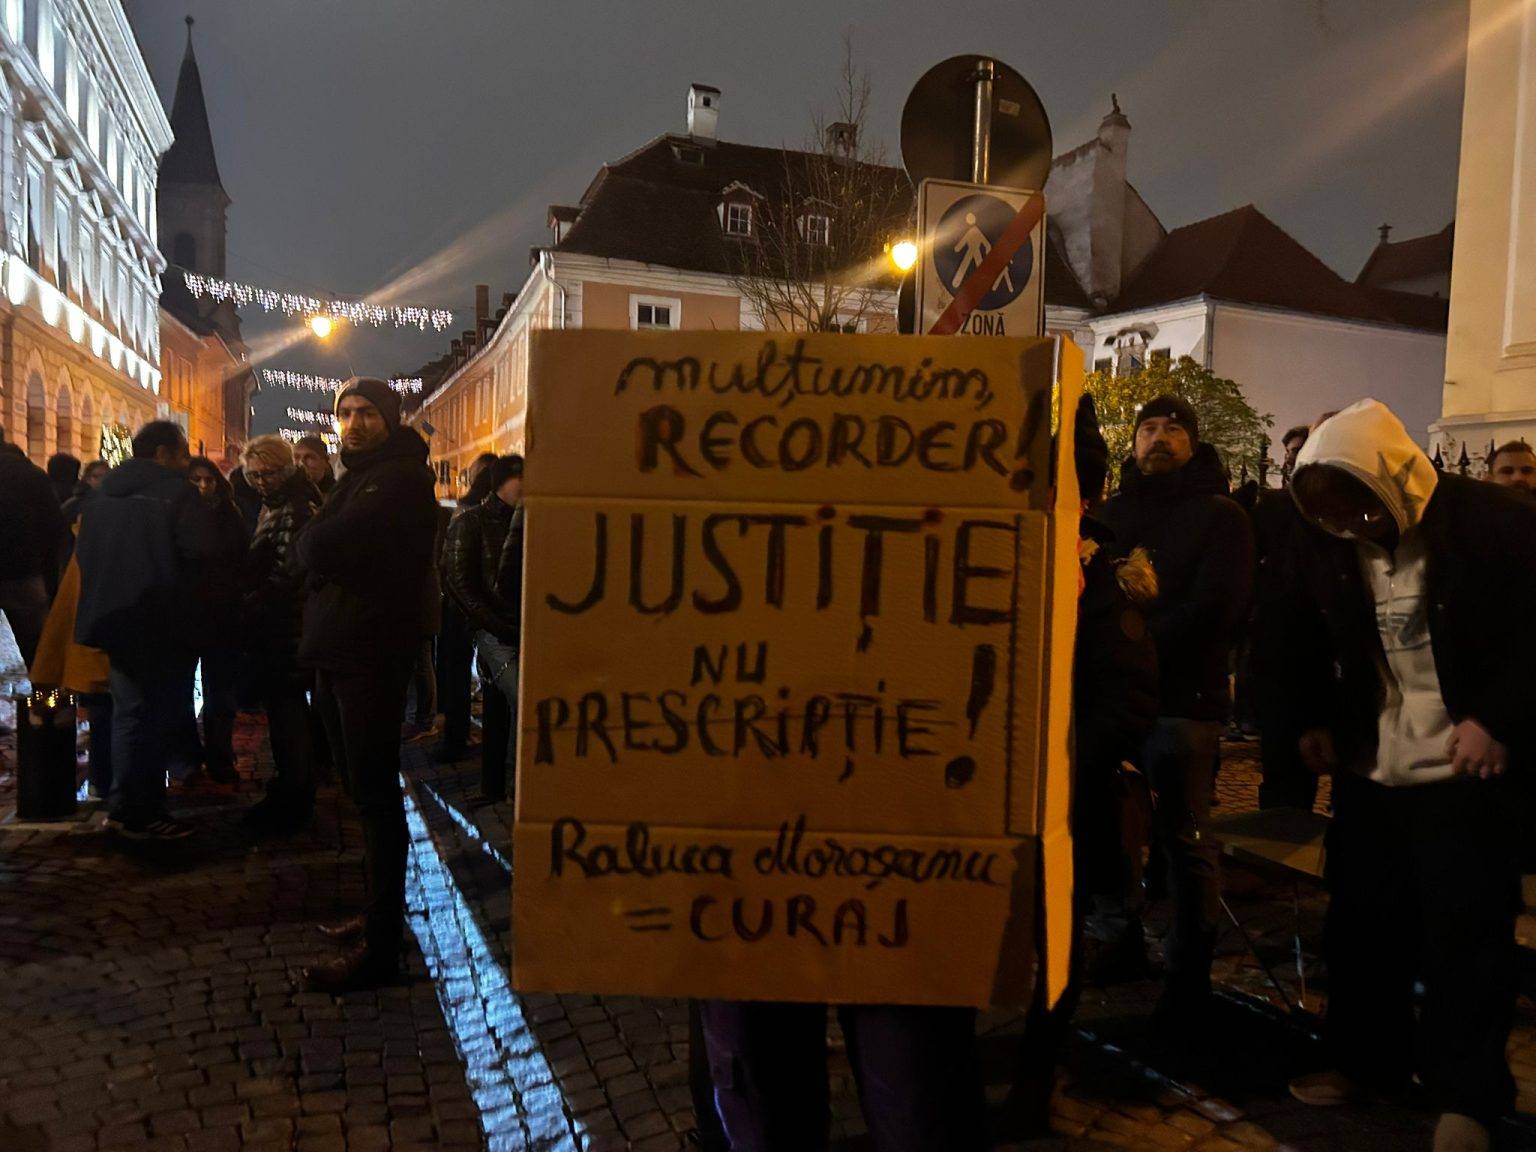 ZONĂ
mulțumim,
RECORDER!
JUSTIȚIE
NU
PRESCRIPȚIE!
Raluca Moroșanu
= CURAJ